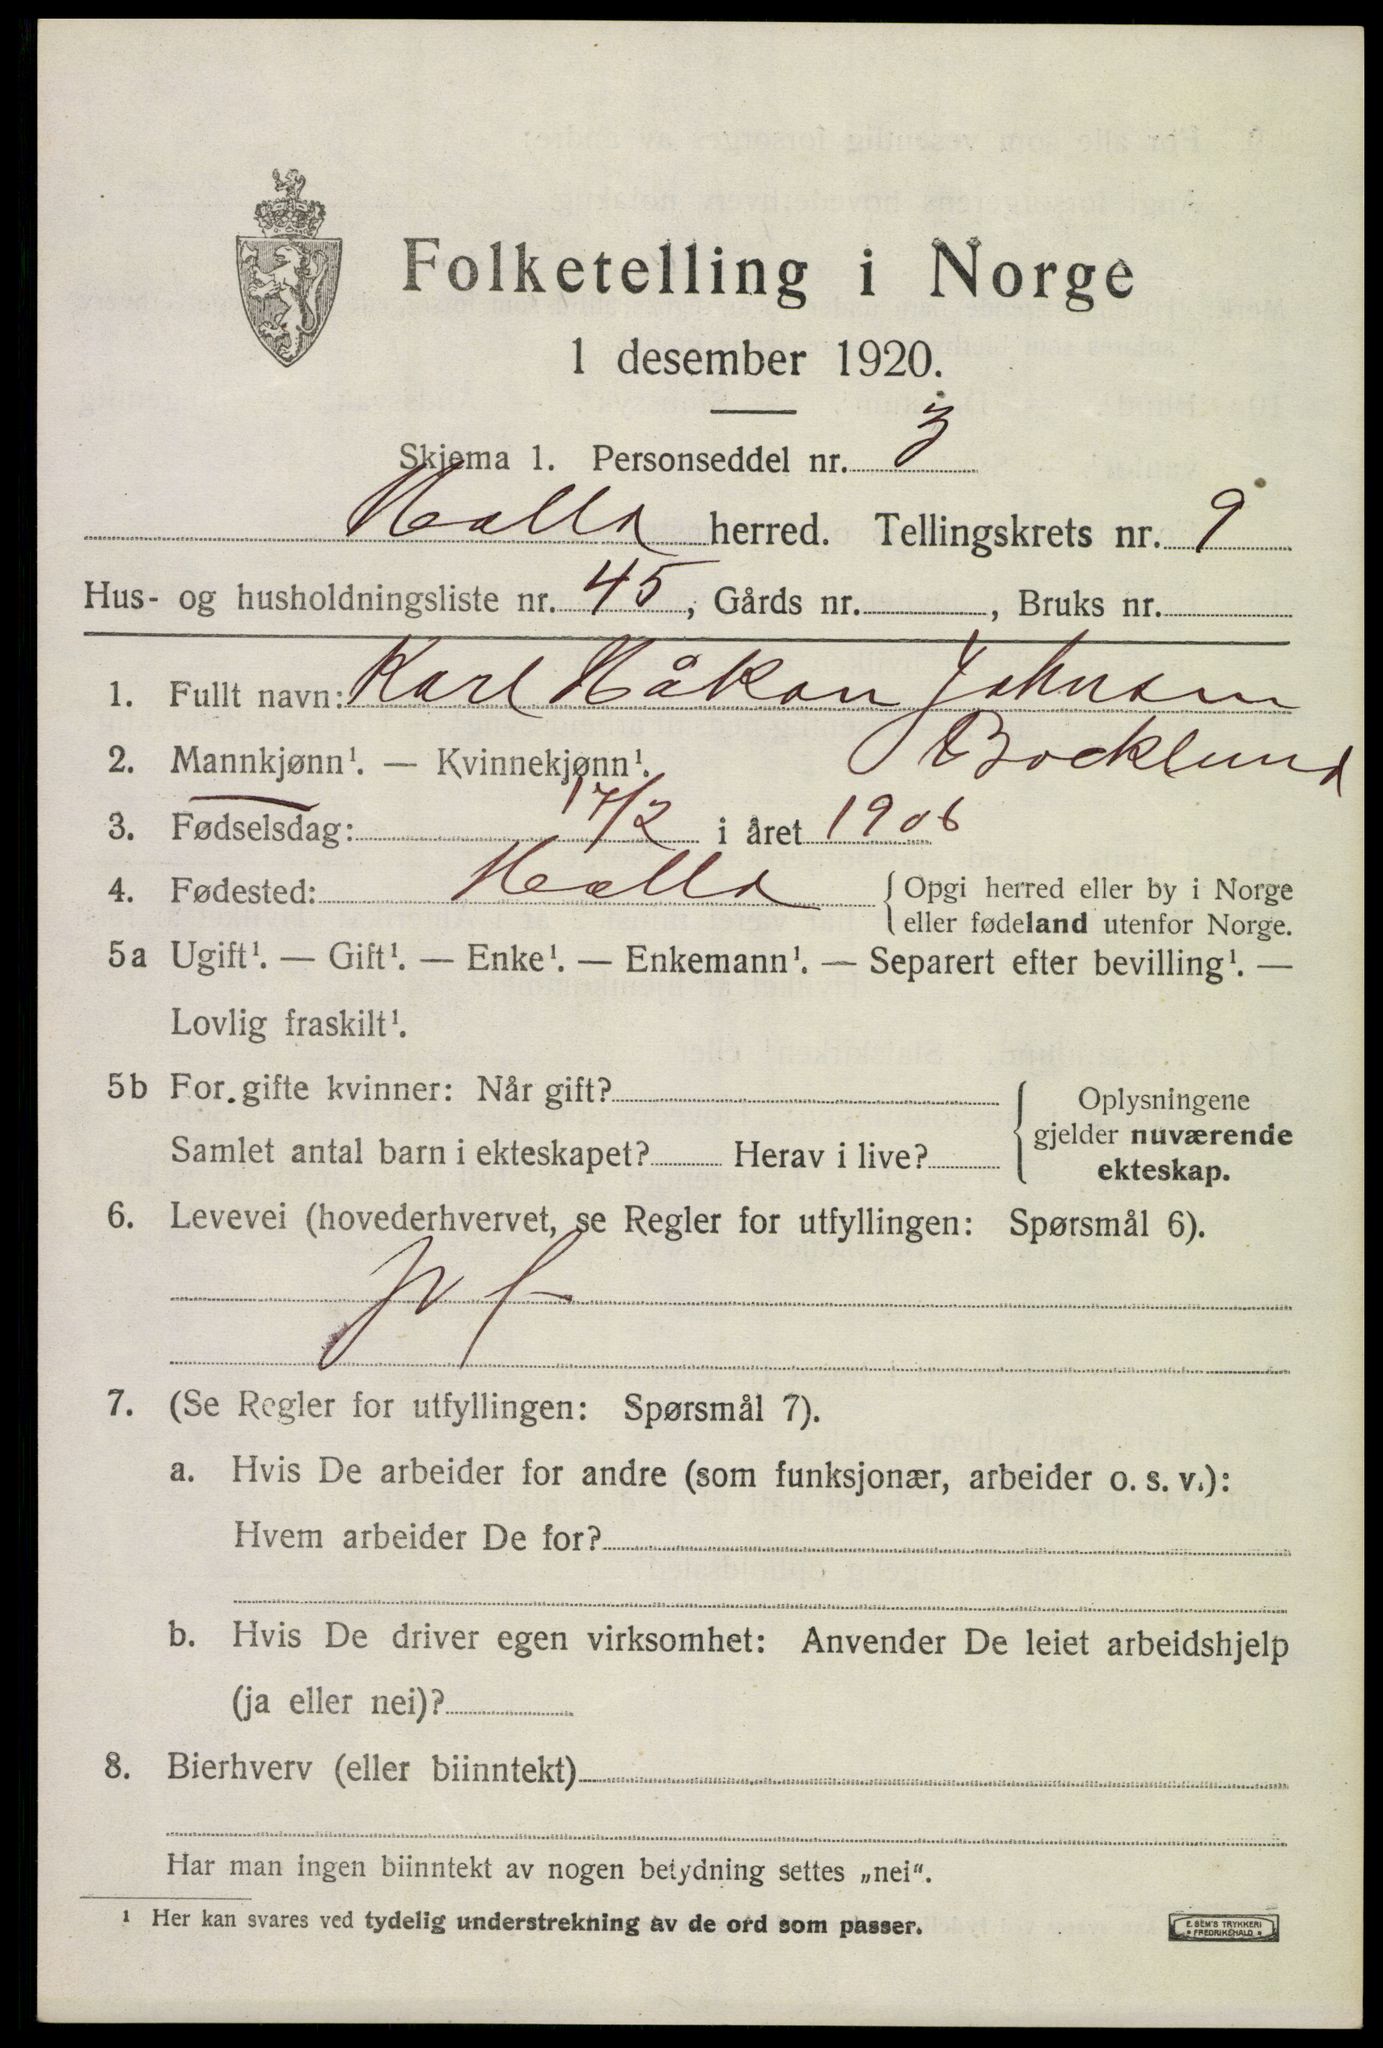 Folketelling i Norge
1 desember 1920.
Skjema 1. Personseddel nr. 3
Holla herred. Tellingskrets nr. 9
Hus- og husholdningsliste nr. 45, Gårds nr. , Bruks nr.
1. Fullt navn: Karl Håkon Johnsen
Bocklund
2. Mannkjønn¹. — Kvinnekjønn¹.
3. Fødselsdag: 17/2 i året 1906
4. Fødested: Holla { Opgi herred eller by i Norge
eller fødeland utenfor Norge.
5a Ugift¹. — Gift¹. — Enke¹. — Enkemann¹. — Separert efter bevilling¹. —
Lovlig fraskilt¹.
5b For gifte kvinner: Når gift? { Oplysningene
gjelder nuværende
Samlet antal barn i ekteskapet? Herav i live?
ekteskap.
6. Levevei (hovederhvervet, se Regler for utfyllingen: Spørsmål 6).
7. (Se Regler for utfyllingen: Spørsmål 7).
a. Hvis De arbeider for andre (som funksjonær, arbeider o. s. v.):
Hvem arbeider De for?
b. Hvis De driver egen virksomhet: Anvender De leiet arbeidshjelp
(ja eller nei)?
8. Bierhverv (eller biinntekt)
Har man ingen biinntekt av nogen betydning settes „nei“.
¹ Her kan svares ved tydelig understrekning av de ord som passer.
E. SEM'S TRYKKERI
FREDRIKSHALD